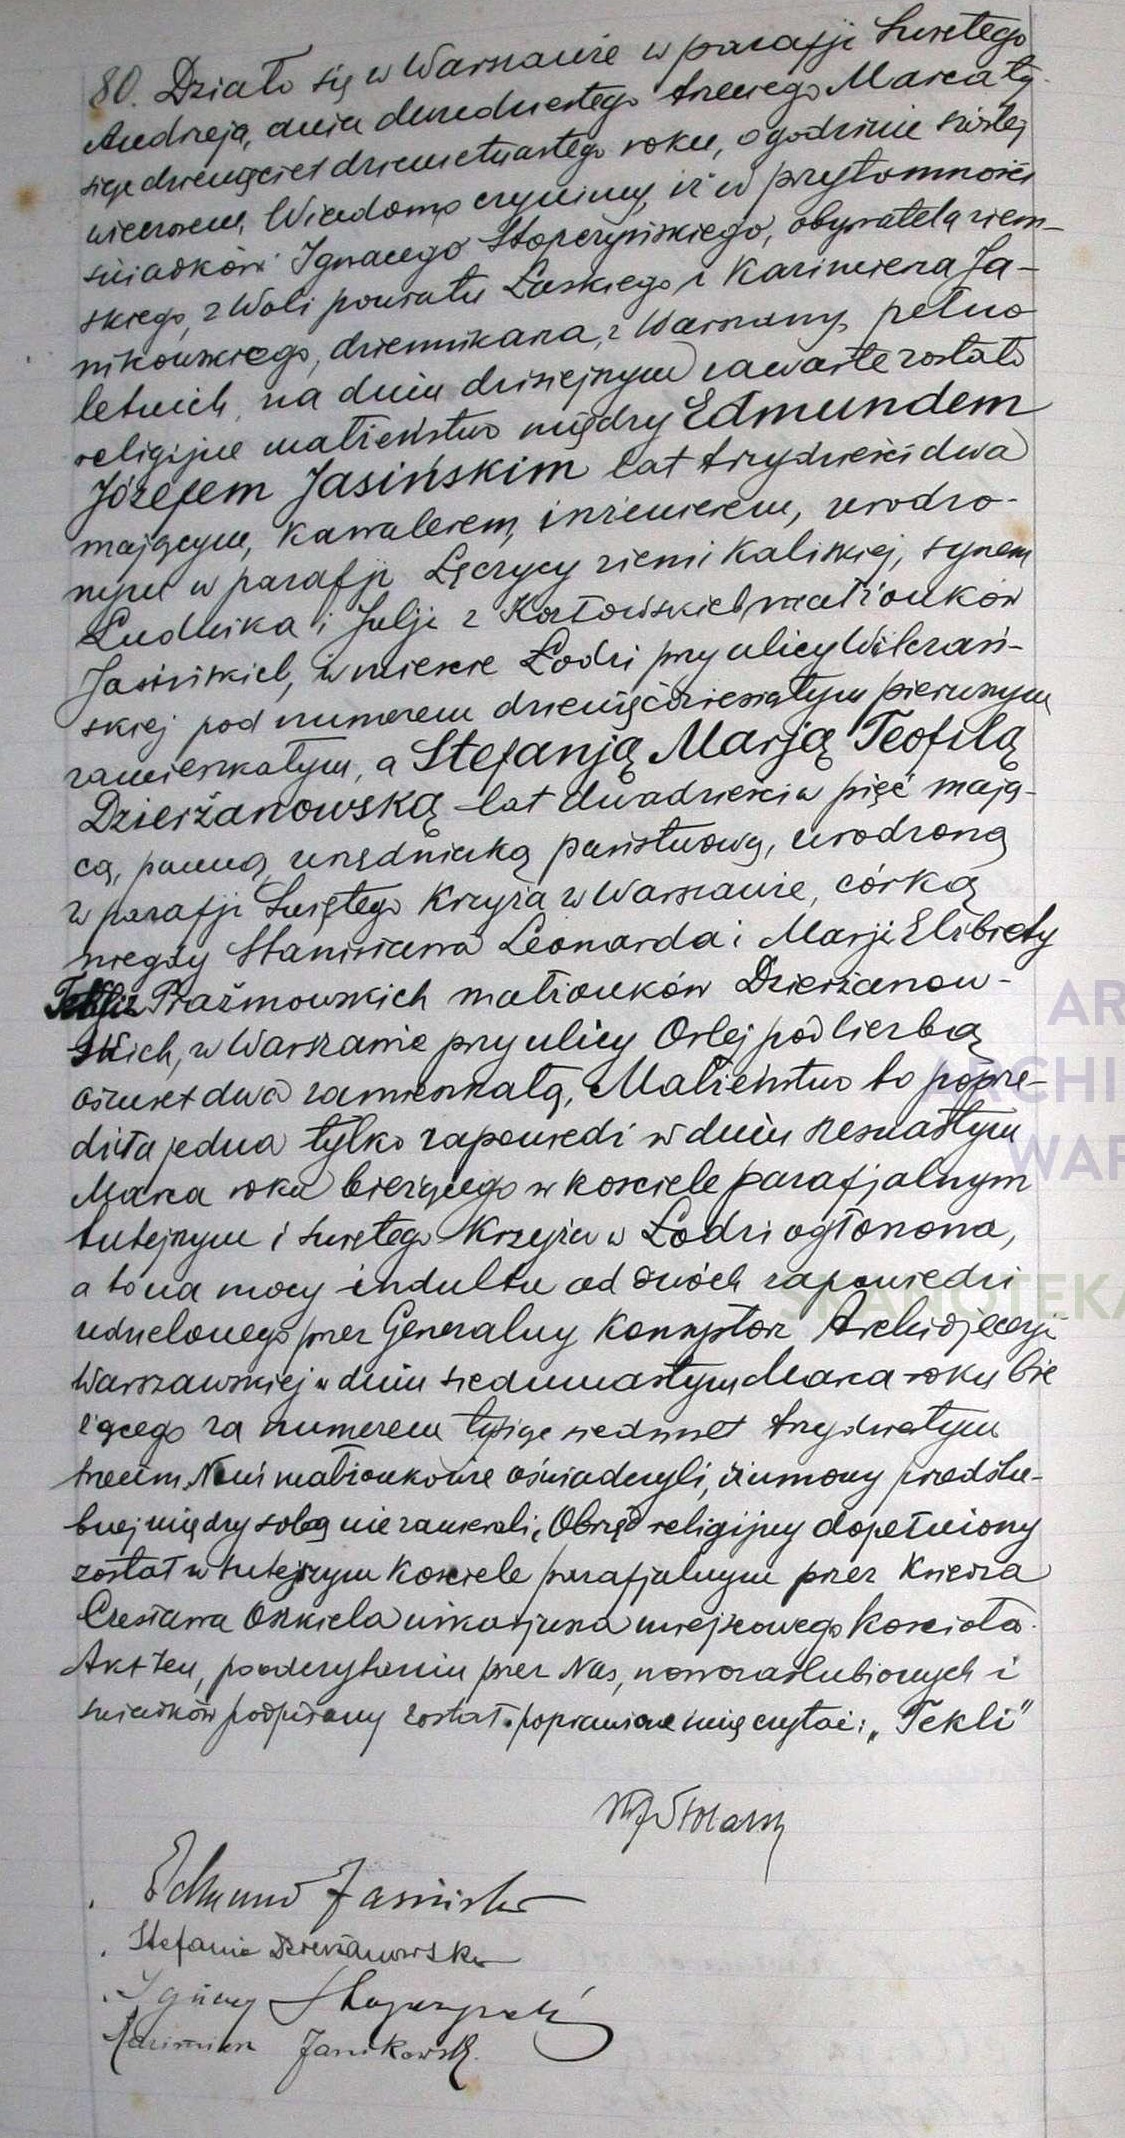 80. Działo się w Warszawie w parafji Świętego
Andrzeja, dnia dwudziestego trzeciego Marca ty-
siąc dziewięćset dziewiętnastego roku, o godzinie szóstej
wieczorem, Wiadomo czynimy, iż w przytomności
świadków Ignacego Stopczyńskiego, obywatela ziem-
skiego, z Woli powiatu Łaskiego i Kazimierza Ja-
nikowskiego, dziennikarza, z Warszawy, pełno
letnich, na dniu dzisiejszym zawarte zostało
religijne małżeństwo między Edmundem
Józefem Jasińskim lat trzydzieści dwa
mającym, kawalerem, inżenierem, urodzo-
nym w parafji Łęczycy ziemi Kaliskiej, synem
Ludwika i Julji z Kozłowskich małżonków
Jasińskich, w mieście Łodzi przy ulicy Wilczań-
skiej pod numerem dziewięćdziesiątym pierwszym
zamieszkałym, a Stefanją Marją Teofilą
Dzierżanowską lat dwadzieścia pięć mają-
cą, panną, urzędniczką państwową, urodzoną
w parafji Świętego Krzyża w Warszawie, córką
niegdy Stanisława Leonarda i Marji Elżbiety
Tekli z Prażmowskich małżonków Dzierżanow-
skich, w Warszawie przy ulicy Orlej pod liczbą
ośm dwa zamieszkałą, Małżeństwo to poprze-
dziła jedna tylko zapowiedź w dniu szesnastym
Marca roku bieżącego w kościele parafjalnym
tutejszym i Świętego Krzyża w Łodzi ogłoszona,
a to na mocy indultu od dwóch zapowiedzi
udzielonego przez Generalny Konsystorz Archidjecezji
Warszawskiej w dniu siedmnastym Marca roku bie
żącego za numerem tysiąc siedmset trzydziestym
trzecim. Nowi małżonkowie oświadczyli, iż umowy przedślu-
bnej między sobą nie zawierali. Obrzęd religijny dopełniony
został w tutejszym Kościele parafjalnym przez Księdza
Czesława Oszkiela wikarjusza miejscowego kościoła.
Akt ten, po odczytaniu przez Nas, nowozaślubionych i
świadków podpisany został. poprawione imię czytać: „Tekli”
Edmund Jasiński
Stefania Dzierżanowska
Ignacy Stopczyński
Kazimierz Janikowski
AR
ARCHI
WAR
SKANOTEKA